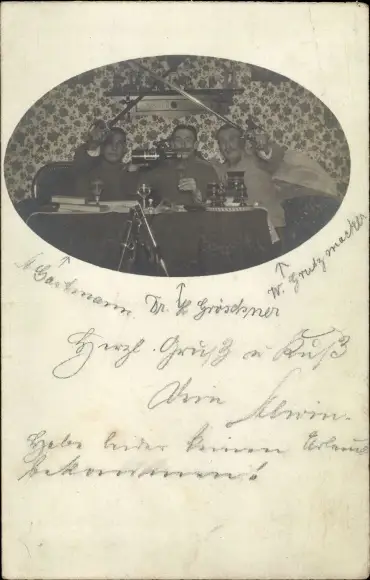 Dr. Gröschner
W. Grutzmacher
Herzl. Gruß u Kuß
Dein Alwin.
Habe leider keinen Urlaub
bekommen!